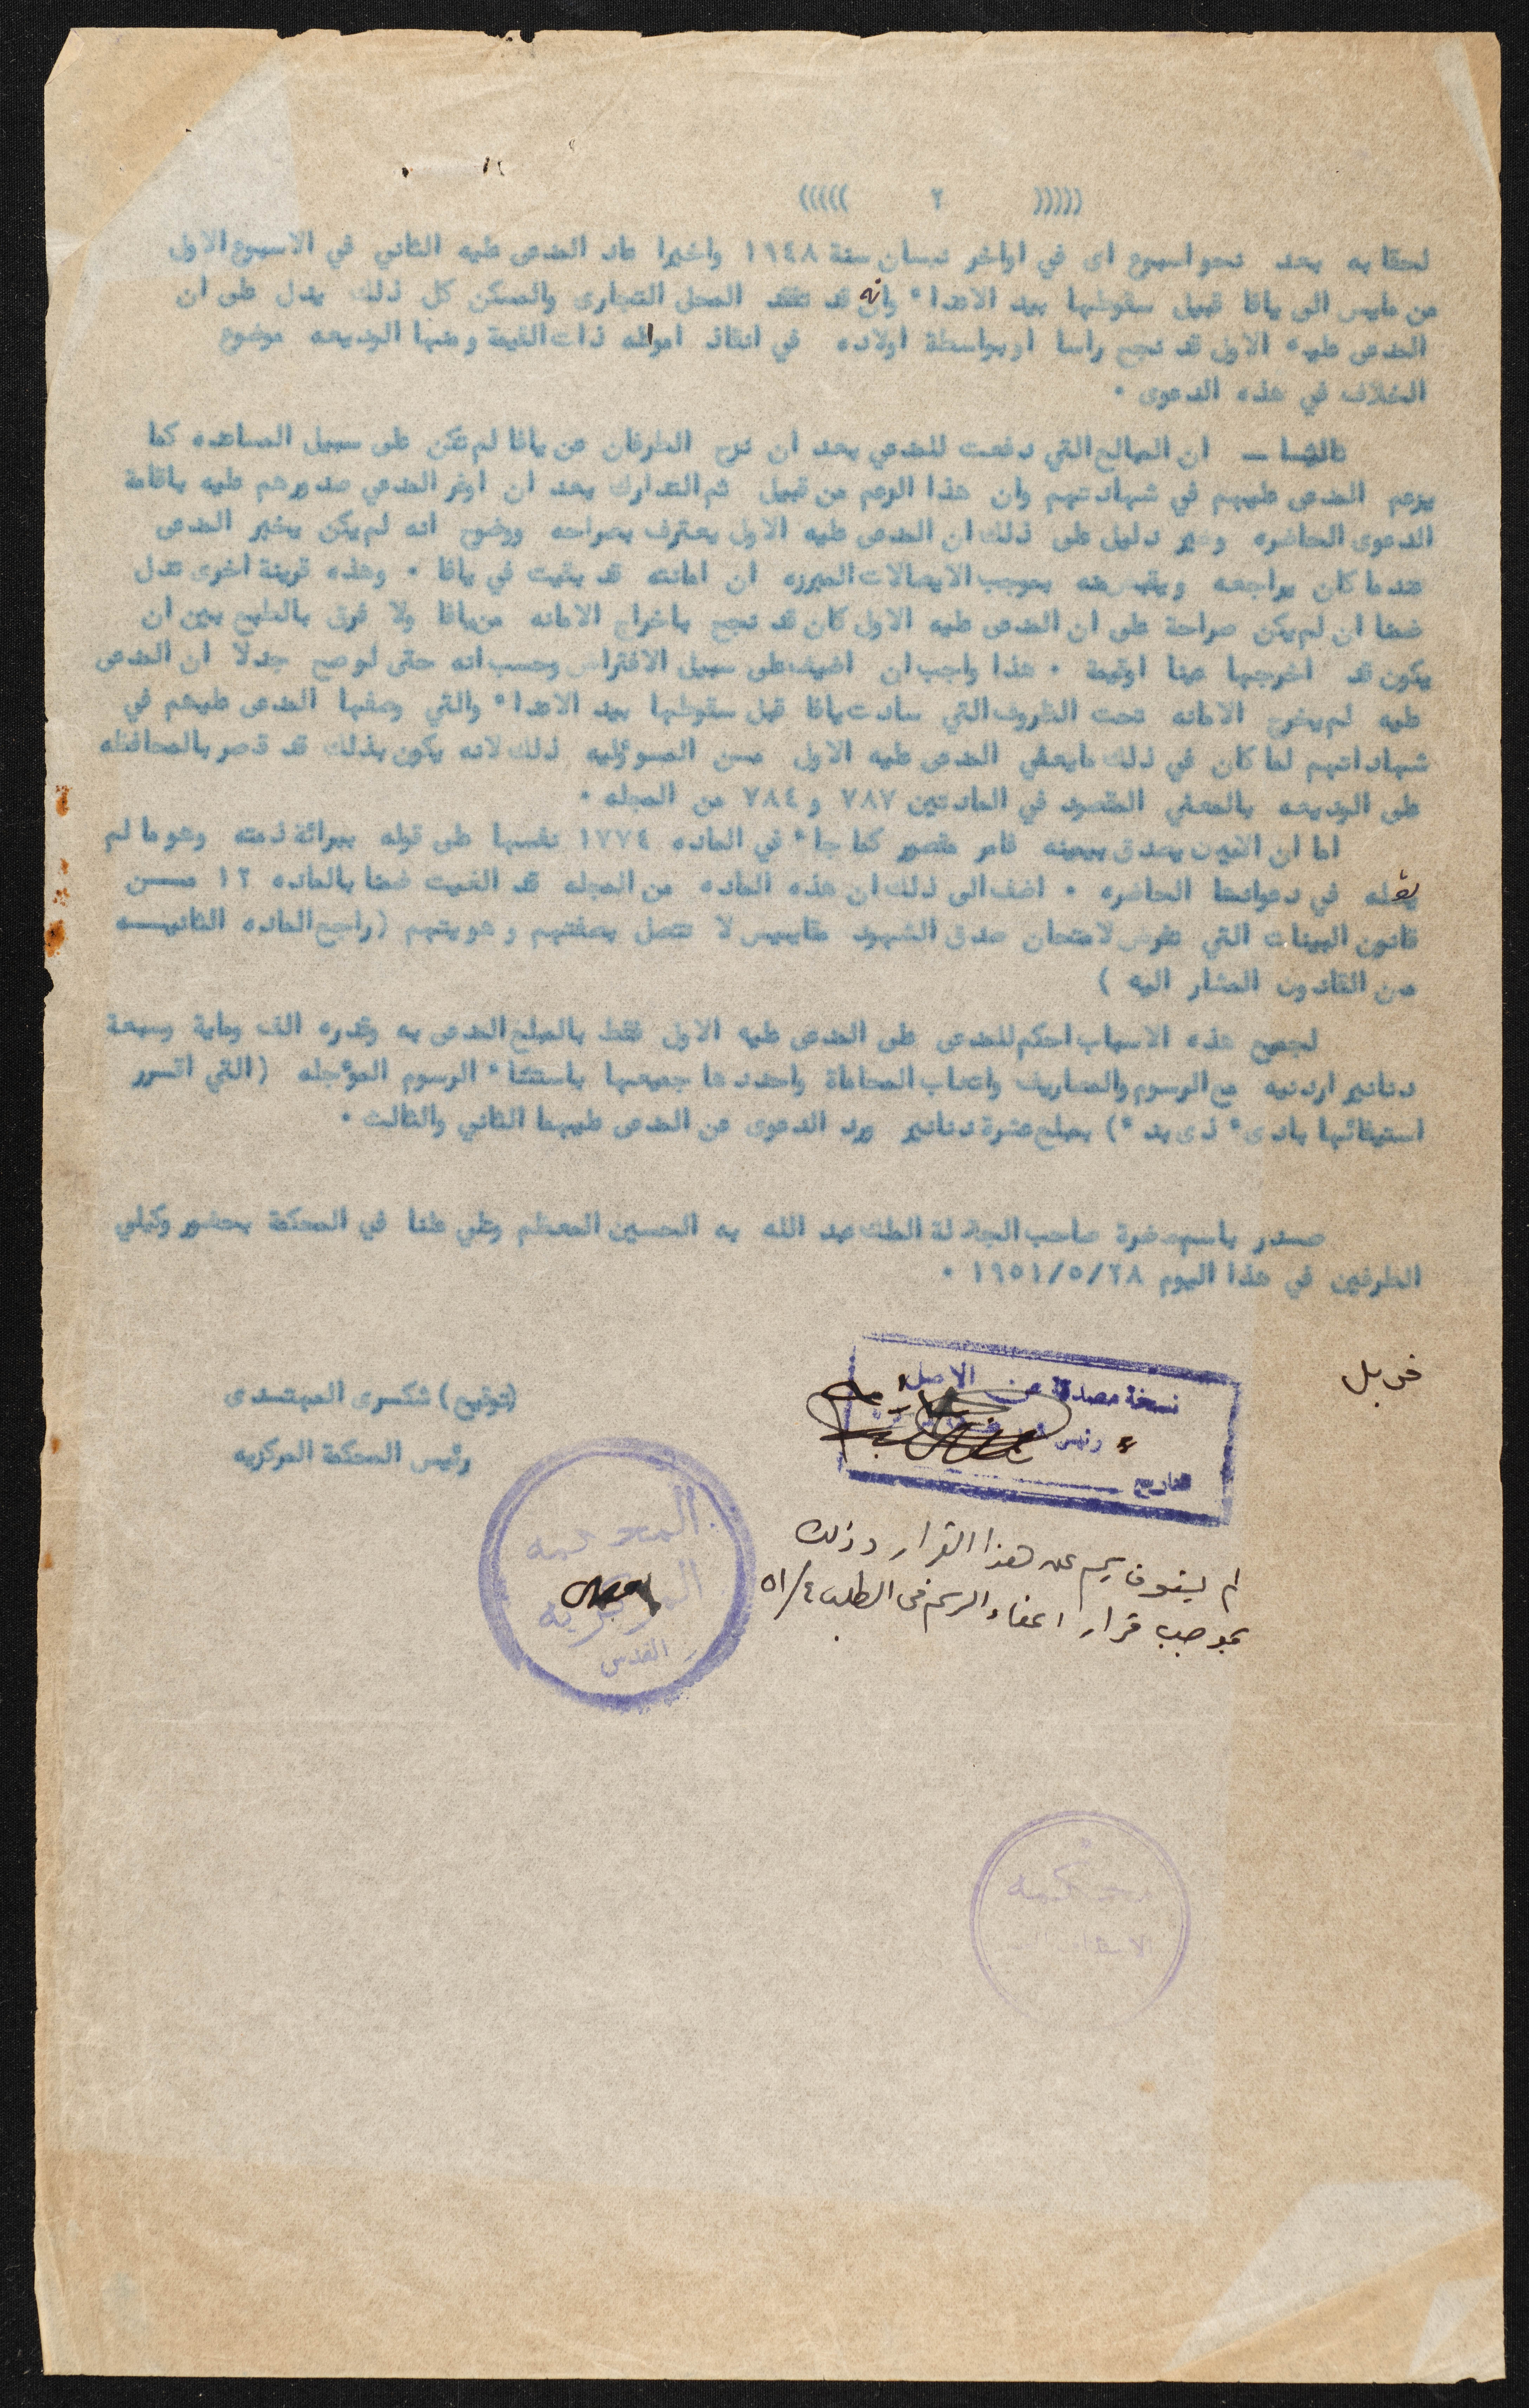 ((((( ٢ )))))
لحقا به بعد نحو اسبوع اى في اواخر نيسان سنة ١٩٤٨ واخيرا عاد المدعى عليه الثاني في الاسبوع الاول
من مايس الى يافا قبيل سقوطها بيد الاعداء وانه قد تفقد المحل التجارى والمسكن كل ذلك يدل على ان
المدعى عليه الاول قد نجح راسا او بواسطة اولاده في انقاذ امواله ذات القيمة ومنها الوديعه موضوع
الخلاف في هذه الدعوى .
ثالثا — ان المبالغ التي دفعت للمدعي بعد ان نزح الطرفان عن يافا لم تكن على سبيل المساعده كما
يزعم المدعى عليهم في شهادتهم وان هذا الزعم من قبيل ثم التدارك بعد ان اوغر المدعي صدورهم عليه باقامة
الدعوى الحاضره وخير دليل على ذلك ان المدعى عليه الاول يعترف بصراحه ووضوح انه لم يكن يخبر المدعى
عندما كان يراجعه ويقبض منه بموجب الايصالات المبرزه ان امانته قد بقيت في يافا . وهذه قرينة اخرى تدل
ضمنا ان لم يكن صراحة على ان المدعى عليه الاول كان قد نجح باخراج الامانه من يافا ولا فرق بالطبع بين ان
يكون قد اخرجها عينا او قيمة . هذا واجب ان اضيف على سبيل الافتراض وحسب انه حتى لو صح جدلا ان المدعى
عليه لم يخرج الامانه تحت الظروف التي سادت يافا قبل سقوطها بيد الاعداء والتي وصفها المدعى عليهم في
شهاداتهم لما كان في ذلك ما يعفي المدعى عليه الاول مـن المسوؤليه ذلك لانه يكون بذلك قد قصر بالمحافظه
على الوديعه بالمعنى المقصود في المادتين ٧٨٧ و ٧٨٤ من المجله .
اما ان الامين يصدق بيمينه فامر مقصور كما جاء في الماده ١٧٧٤ نفسها على قوله ببرائة ذمته وهو ما لم
يقله في دعوانها الحاضره . اضف الى ذلك ان هذه الماده من المجله قد الغيت ضمنا بالماده ١٢ مــن
قانون البينات التي تفرض لامتحان صدق الشهود مقاييس لا تتصل بصفتهم وهويتهم (راجع الماده الثانيــه
من القانون المشار اليه )
لجميع هذه الاسباب احكم للمدعى على المدعى عليه الاول فقط بالمبلغ المدعى به وقدره الف وماية وسبعة
دنانير اردنيه مع الرسوم والمصاريف واتعاب المحاماة واحددها جميعها باستثناء الرسوم المؤجله (التي اقـرر
استيفائها بادىء ذى بدء ) بمبلغ عشرة دنانير ورد الدعوى عن المدعى عليهما الثاني والثالث .
صـدر باسم حضرة صاحب الجلالة الملك عبد الله به الحسين المعظم وتلي علنا في المحكمة بحضور وكيلي
الطرفين في هذا اليوم ١٩٥١/٥/٢٨ .
قوبل
نسخة مصدقة عن الاصل
رئيس
التاريخ
(توقيع) شكـرى المهتـدى
رئيس المحكمة المركزيه
المحكمه
المركزيه
القدس
لم يستوف رسم عن هذا القرار وذلك
بموجب قرار اعفاء الرسم في الطلب ٥١/٤
محكمه